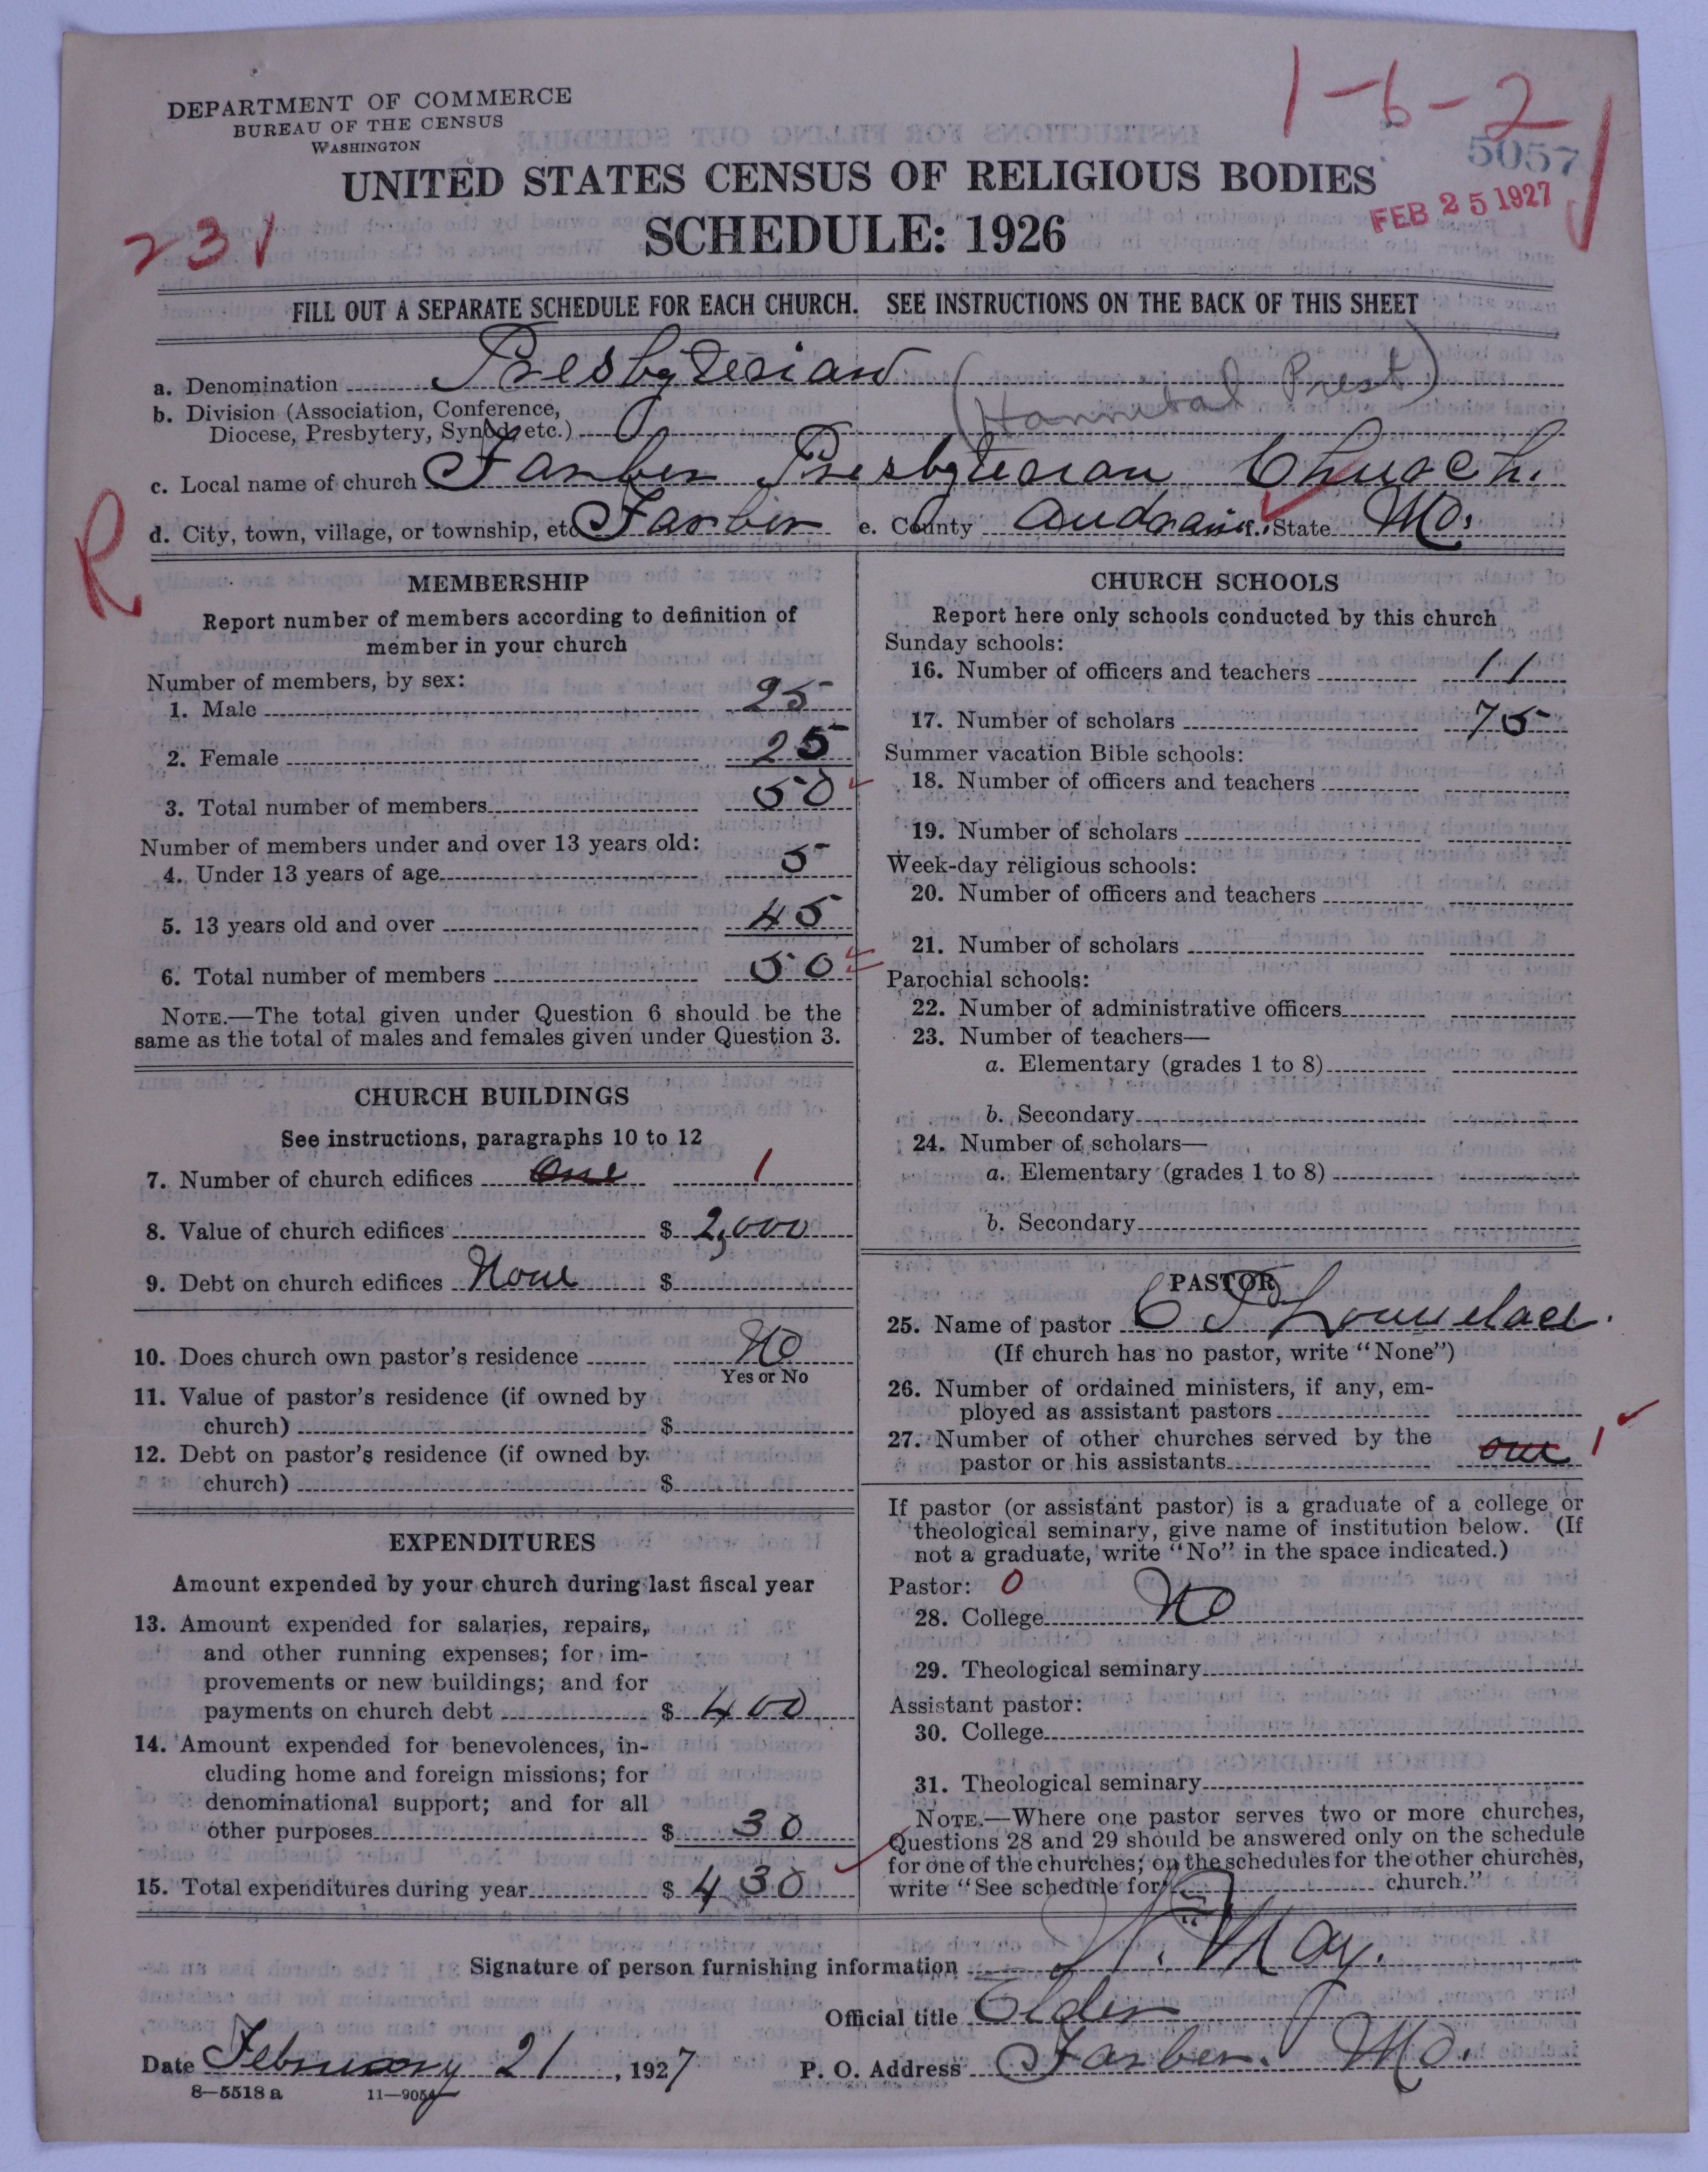 DEPARTMENT OF COMMERCE
BUREAU OF THE CENSUS
WASHINGTON
1-6-2
5057
FEB 25 1927
UNITED STATES CENSUS OF RELIGIOUS BODIES
SCHEDULE: 1926
231
FILL OUT A SEPARATE SCHEDULE FOR EACH CHURCH. SEE INSTRUCTIONS ON THE BACK OF THIS SHEET
a. Denomination Presbyterian
b. Division (Association, Conference, (Hannibal Prest)
Diocese, Presbytery, Synod, etc.)
c. Local name of church Farber Presbyterian Church.
d. City, town, village, or township, etc Farber e. County Audrain f. State Mo.
R
MEMBERSHIP
Report number of members according to definition of
member in your church
Number of members, by sex:
1. Male 25
2. Female 25
3. Total number of members 50
Number of members under and over 13 years old:
4. Under 13 years of age 5
5. 13 years old and over 45
6. Total number of members 50
NOTE.—The total given under Question 6 should be the
same as the total of males and females given under Question 3.
CHURCH BUILDINGS
See instructions, paragraphs 10 to 12
7. Number of church edifices One 1
8. Value of church edifices $ 2,000
9. Debt on church edifices None $
10. Does church own pastor's residence No
Yes or No
11. Value of pastor's residence (if owned by
church) $
12. Debt on pastor's residence (if owned by
church) $
EXPENDITURES
Amount expended by your church during last fiscal year
13. Amount expended for salaries, repairs,
and other running expenses; for im-
provements or new buildings; and for
payments on church debt $ 400
14. Amount expended for benevolences, in-
cluding home and foreign missions; for
denominational support; and for all
other purposes $ 30
15. Total expenditures during year $ 430
CHURCH SCHOOLS
Report here only schools conducted by this church
Sunday schools:
16. Number of officers and teachers 11
17. Number of scholars 75
Summer vacation Bible schools:
18. Number of officers and teachers
19. Number of scholars
Week-day religious schools:
20. Number of officers and teachers
21. Number of scholars
Parochial schools:
22. Number of administrative officers
23. Number of teachers—
a. Elementary (grades 1 to 8)
b. Secondary
24. Number of scholars—
a. Elementary (grades 1 to 8)
b. Secondary
PASTOR
25. Name of pastor C
(If church has no pastor, write "None")
26. Number of ordained ministers, if any, em-
ployed as assistant pastors
27. Number of other churches served by the
pastor or his assistants one 1
If pastor (or assistant pastor) is a graduate of a college or
theological seminary, give name of institution below. (If
not a graduate, write "No" in the space indicated.)
Pastor: 0
28. College No
29. Theological seminary
Assistant pastor:
30. College
31. Theological seminary
NOTE.—Where one pastor serves two or more churches,
Questions 28 and 29 should be answered only on the schedule
for one of the churches; on the schedules for the other churches,
write "See schedule for church."
Signature of person furnishing information May.
Official title Elder
Date February 21, 1927 P. O. Address Farber. Mo.
8—5518 a 11—9054